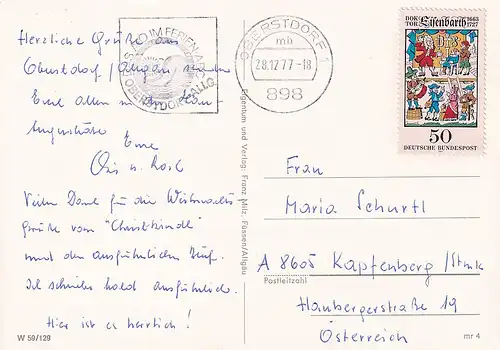 Herzliche Grüße aus
Oberstdorf / Allgäu senden
Euch allen
Eure
Vielen Dank für die Weihnachts-
grüße vom "Christkindl"
und den ausführlichen Brief.
Ich schreibe bald ausführlich.
Hier ist es herrlich!
W 59/129
IM FERIENPARADIES
OBERSTDORF/ALLG.
OBERSTDORF 1
mb
28.12.77-18
898
DOKTOR Eisenbarth 1663
1727
50
DEUTSCHE BUNDESPOST
Eigentum und Verlag: Franz Milz, Füssen/Allgäu
Frau
Maria Schurtl
A 8605 Kapfenberg/Stmk
Postleitzahl
Haubergerstraße 19
Österreich
mr 4